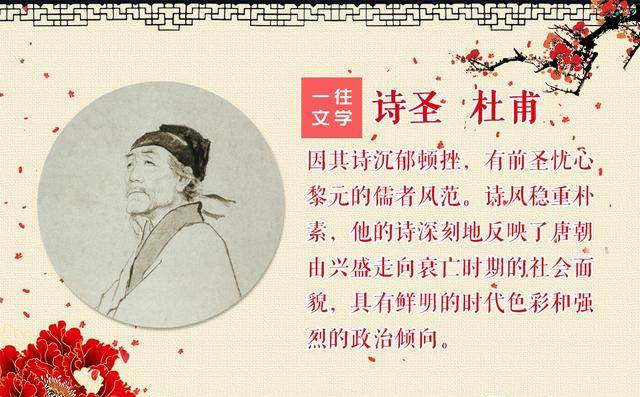 一往
文学
诗圣 杜甫
因其诗沉郁顿挫，有前圣忧心
黎元的儒者风范。诗风稳重朴
素，他的诗深刻地反映了唐朝
由兴盛走向衰亡时期的社会面
貌，具有鲜明的时代色彩和强
烈的政治倾向。